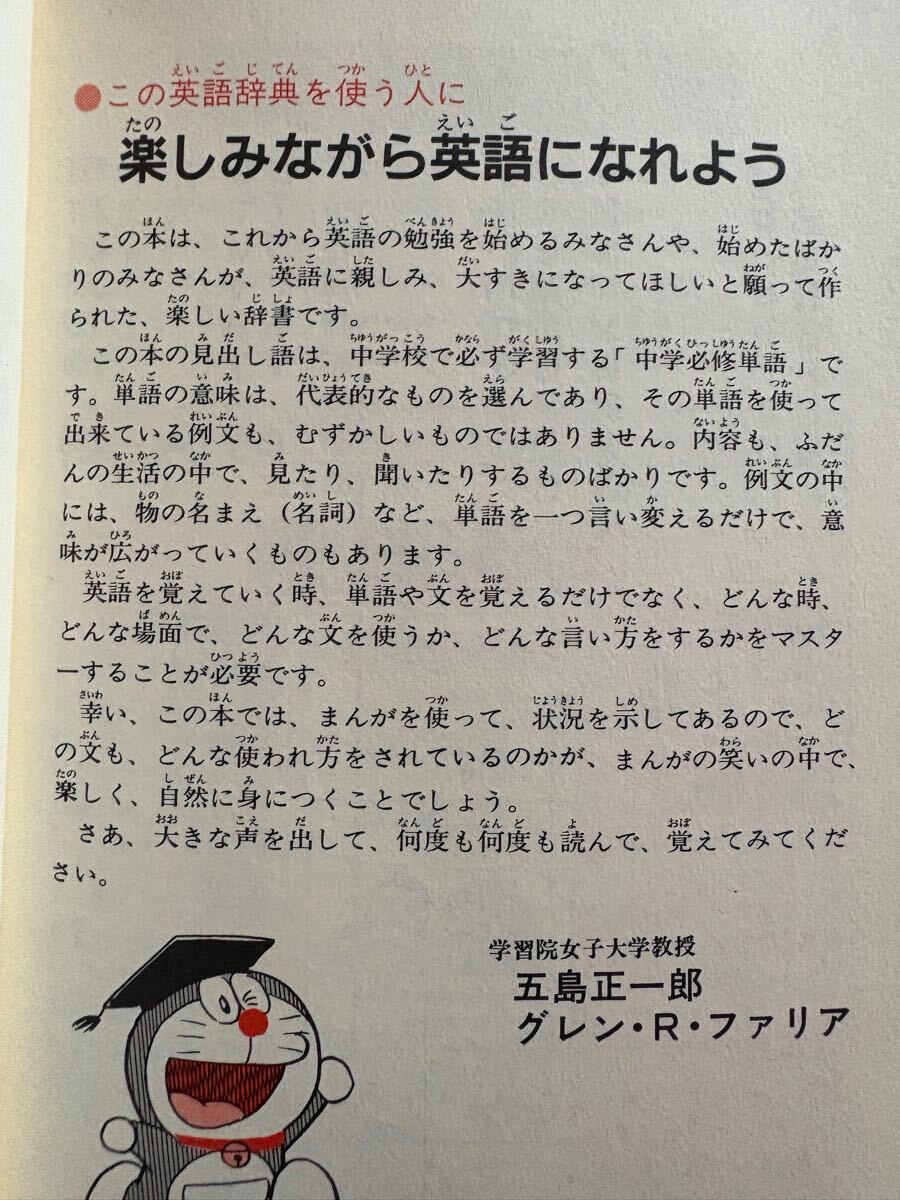 ●この英語辞典を使う人に
楽しみながら英語になれよう
この本は、これから英語の勉強を始めるみなさんや、始めたばか
りのみなさんが、英語に親しみ、大すきになってほしいと願って作
られた、楽しい辞書です。
この本の見出し語は、中学校で必ず学習する「中学必修単語」で
す。単語の意味は、代表的なものを選んであり、その単語を使って
出来ている例文も、むずかしいものではありません。内容も、ふだ
んの生活の中で、見たり、聞いたりするものばかりです。例文の中
には、物の名まえ（名詞）など、単語を一つ言い変えるだけで、意
味が広がっていくものもあります。
英語を覚えていく時、単語や文を覚えるだけでなく、どんな時、
どんな場面で、どんな文を使うか、どんな言い方をするかをマスタ
ーすることが必要です。
幸い、この本では、まんがを使って、状況を示してあるので、ど
の文も、どんな使われ方をされているのかが、まんがの笑いの中で、
楽しく、自然に身につくことでしょう。
さあ、大きな声を出して、何度も何度も読んで、覚えてみてくだ
さい。
学習院女子大学教授
五島正一郎
グレン・R・ファリア